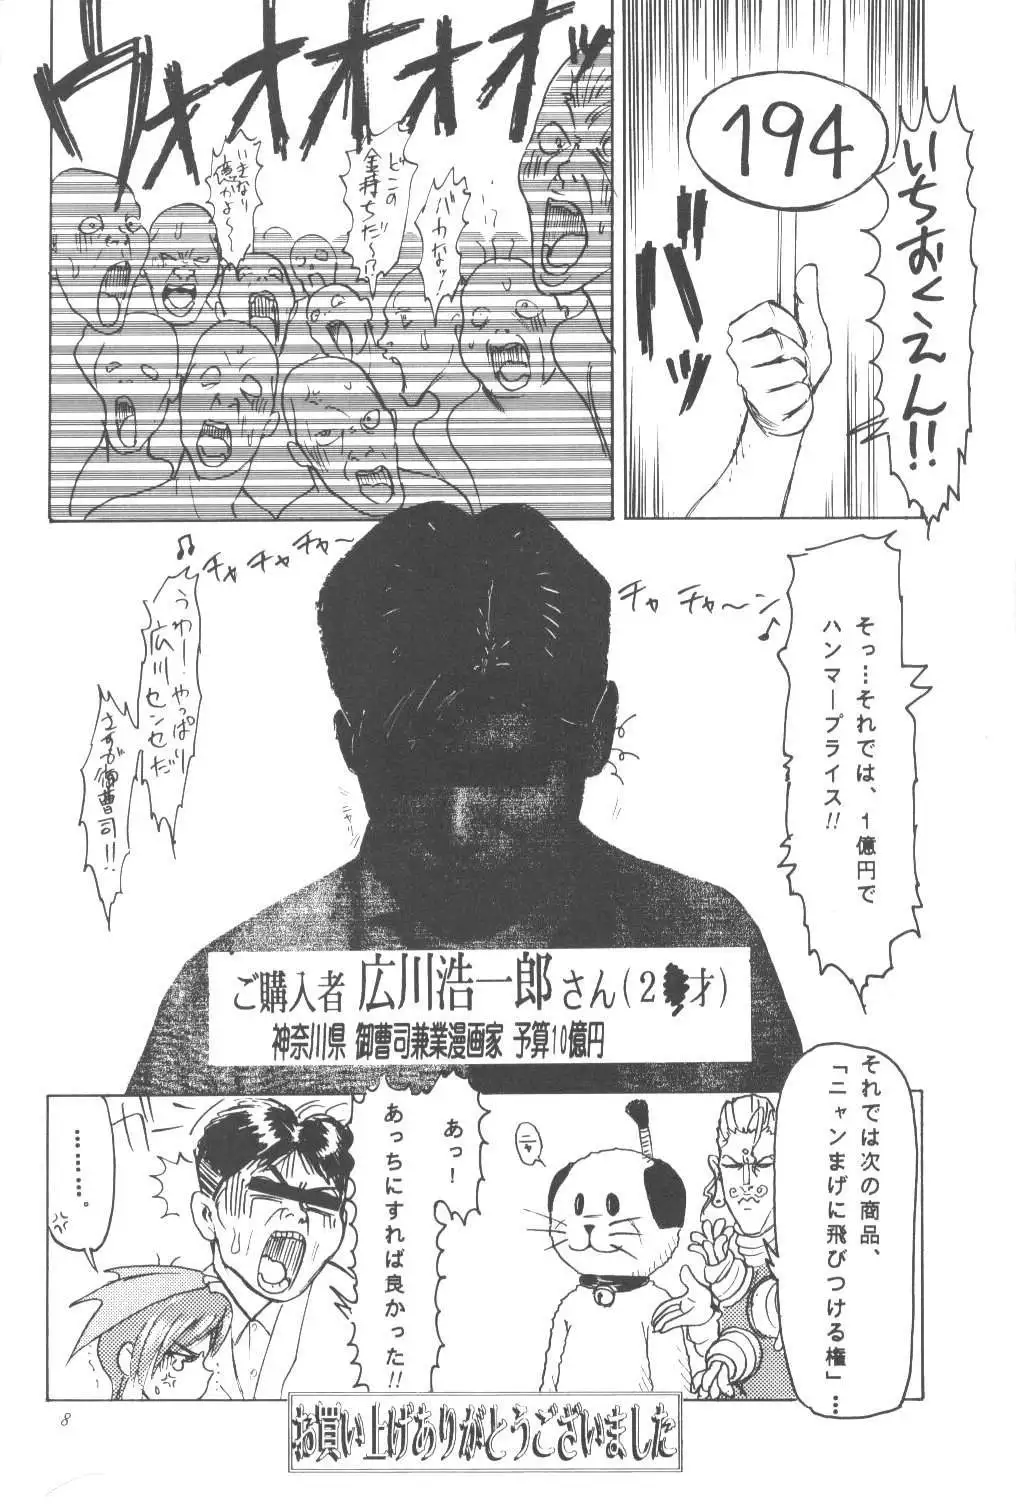 いちおくえん!!
194
バッ
ウォオオオオッ
バカなッ!
どこの
金持ちだ〜!?
いきなり
億かよ〜
そっ…それでは、1億円で
ハンマープライス!!
チャ チャ〜ン♪
チャ チャ チャ〜♪
うわー!やっぱり
広川センセだ
さすが御曹司!!
ご購入者 広川浩一郎さん(2 才)
神奈川県 御曹司兼業漫画家 予算10億円
それでは次の商品、
「ニャンまげに飛びつける権」…
ニャ
あっ!
あっちにすれば良かった!!
………。
お買い上げありがとうございました
8